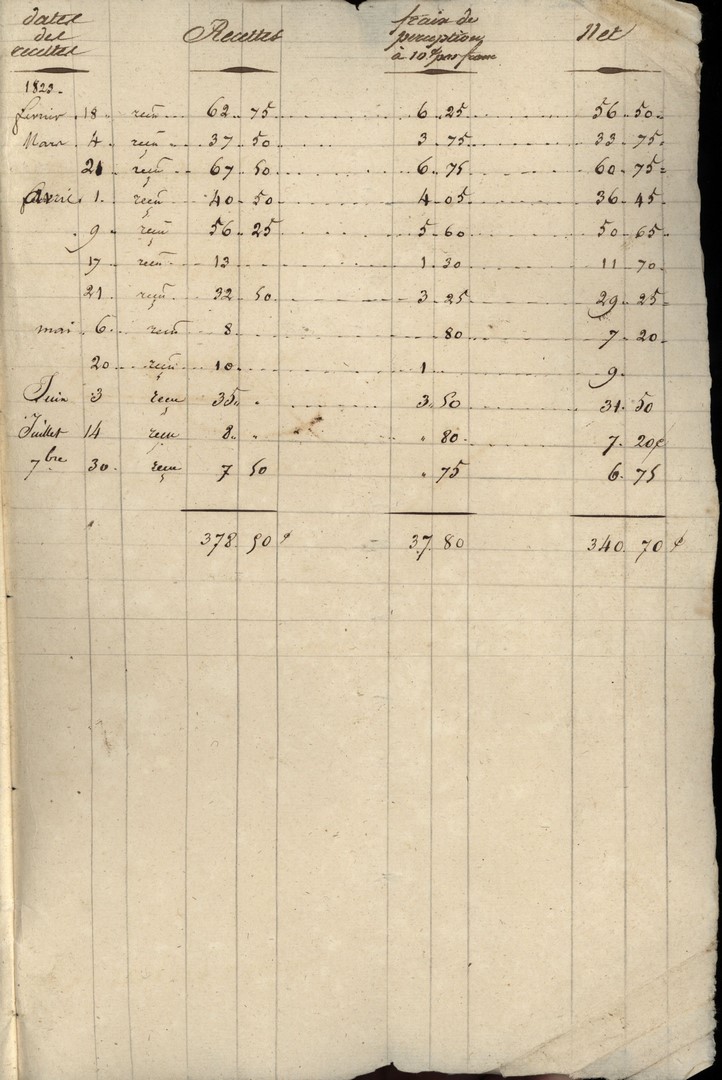 dates des recettes Recettes frais de perception à 10 % par franc Net
1823.
février 18 reçu 62 75 6 25 56 50
Mars 4 reçu 37 50 3 75 33 75
21 reçu 67 50 6 75 60 75
avril 1 reçu 40 50 4 05 36 45
9 reçu 56 25 5 60 50 65
17 reçu 13 1 30 11 70
21 reçu 32 50 3 25 29 25
mai 6 reçu 8 80 7 20
20 reçu 10 1 9
Juin 3 reçu 35 " 3 50 31 50
Juillet 14 reçu 8 " " 80 7 20
7bre 30 reçu 7 50 " 75 6 75
378 50 37 80 340 70